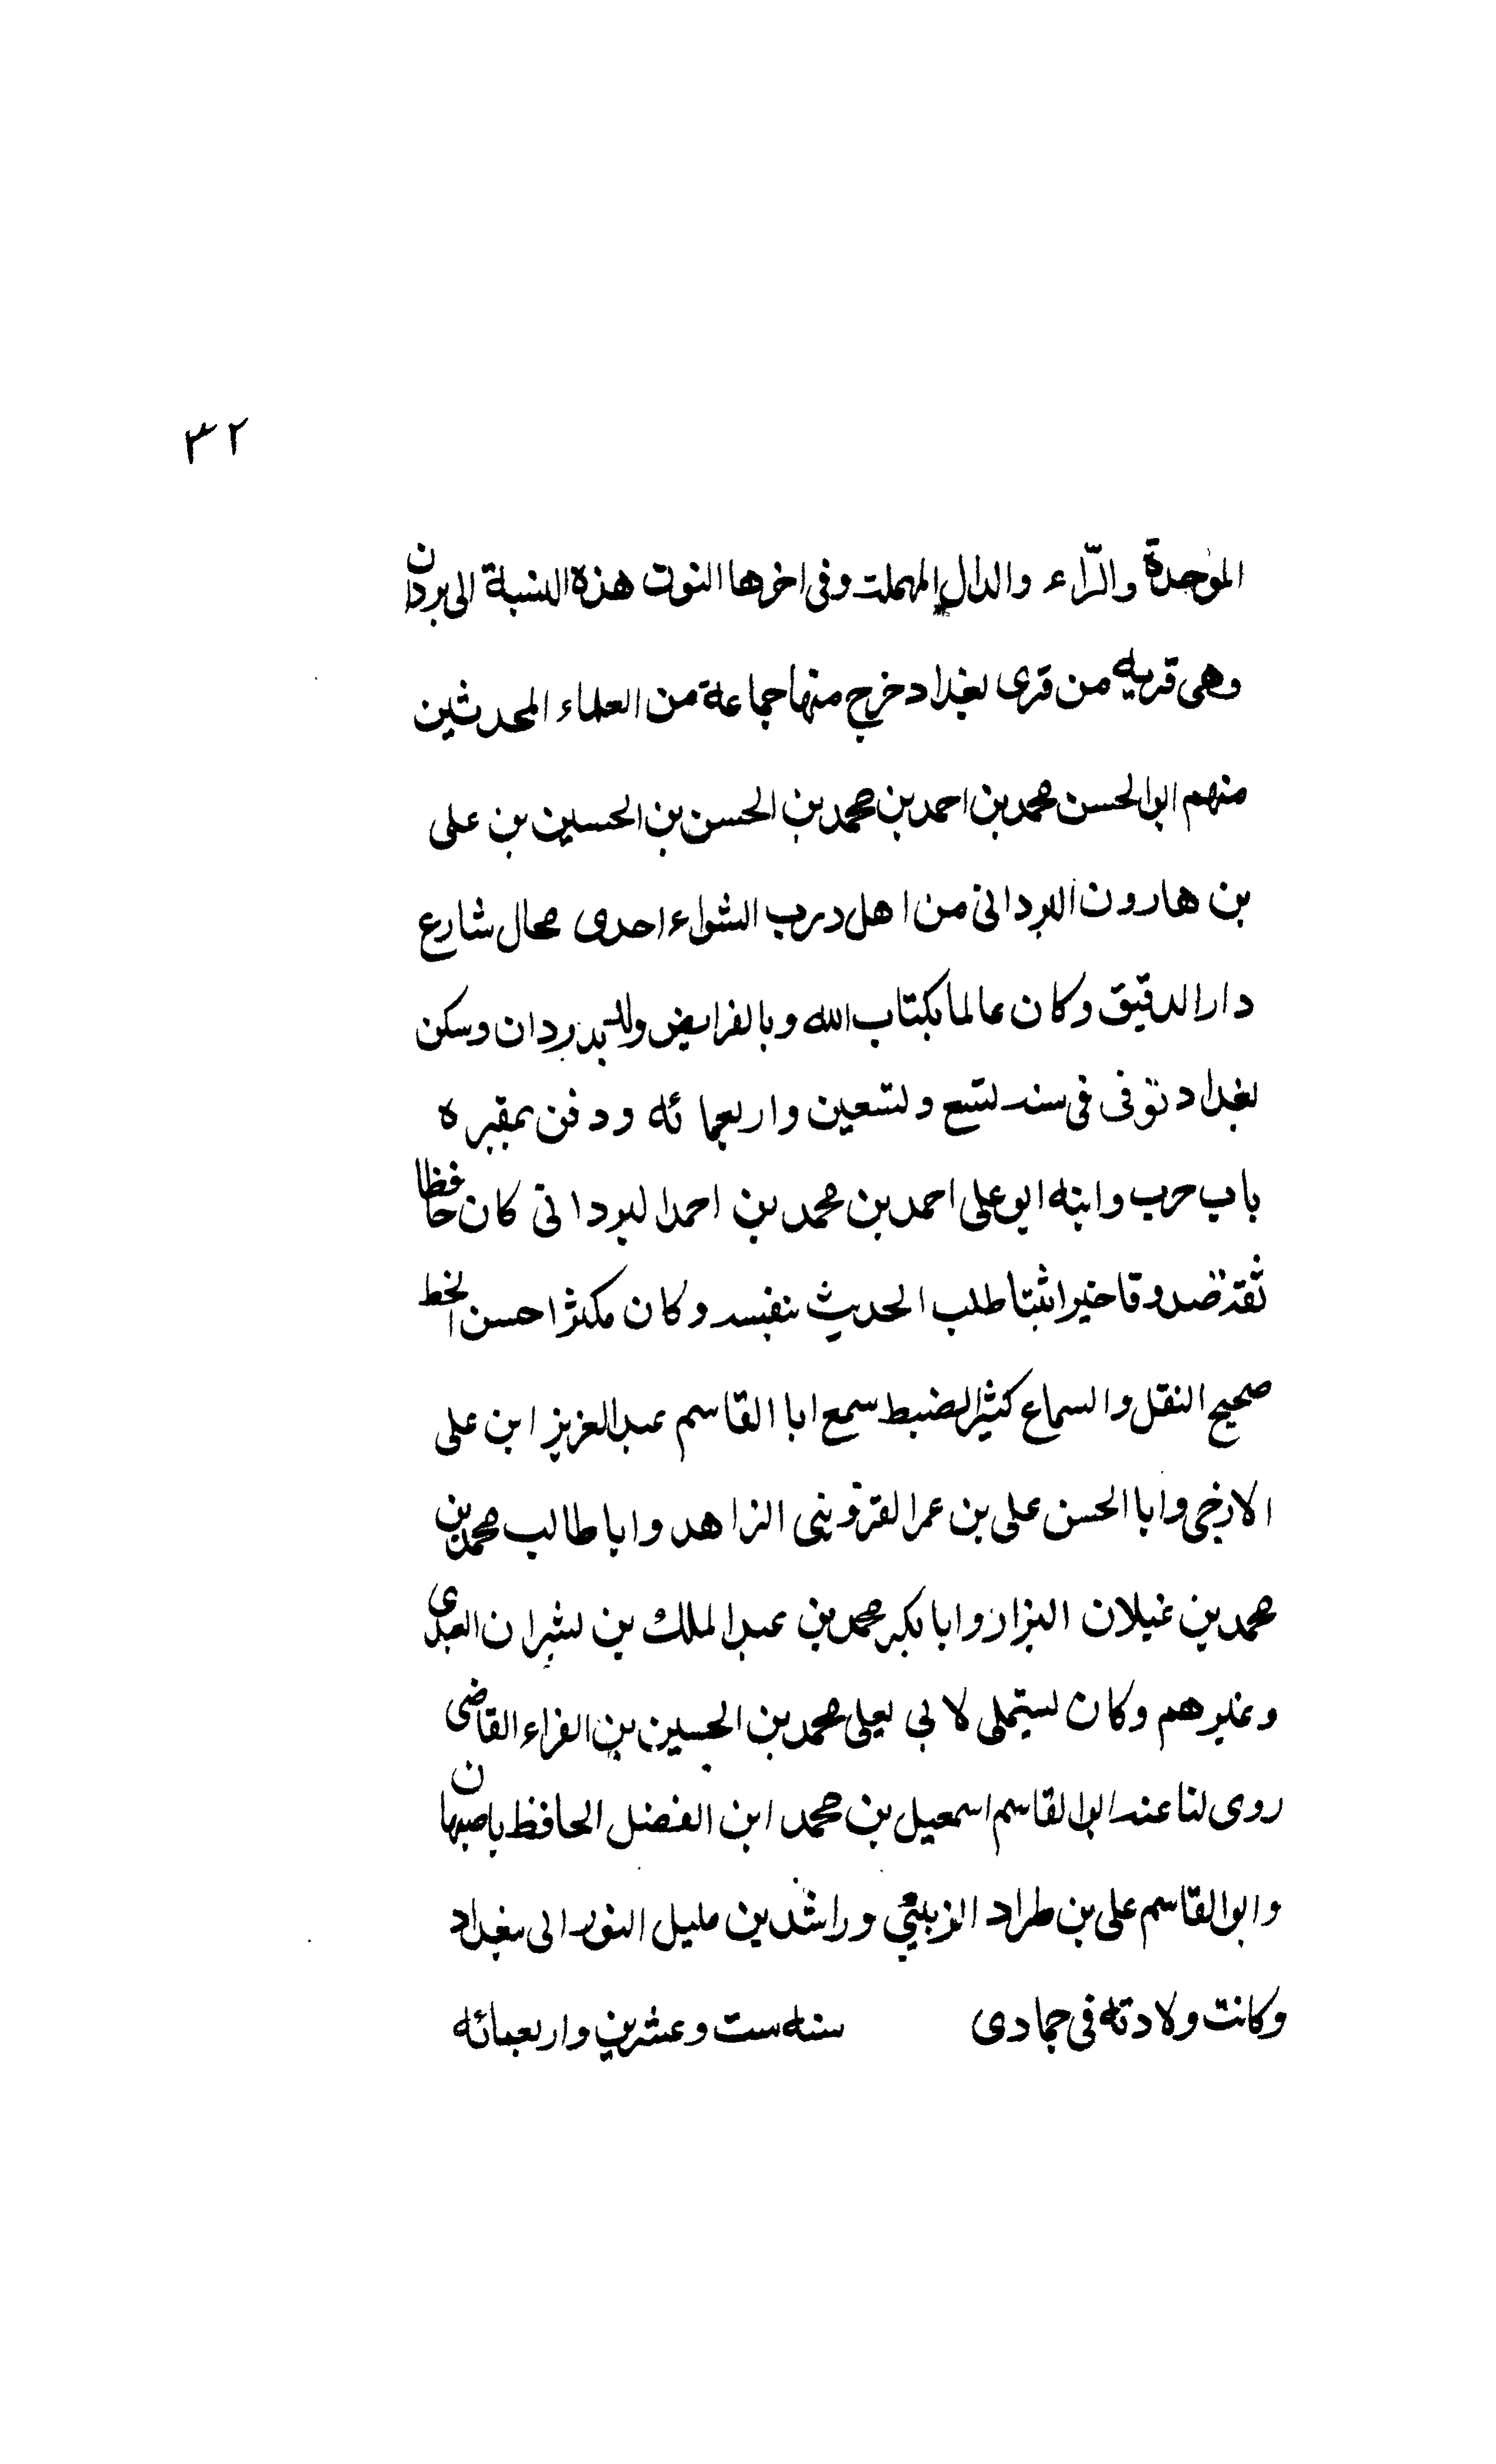 ٣٢
الموحدة والرّاء والدال المهملة وفى اخرها النون هذه النسبة الى بردان
وهى قريه من قرى بغداد خرج منها جماعة من العلماء المحدثين
منهم ابوالحسن محمد بن احمد بن محمد بن الحسن بن الحسين بن على
بن هارون البردانى من اهل درب الشواء احدى محال شارع
دار الدقيق وكان عالما بكتاب الله وبالفرايض ولد ببردان وسكن
بغداد توفى فى سنة تسع وتسعين واربعمائه ودفن بمقبره
باب حرب وابنه ابو على احمد بن محمد بن احمد البردانى كان حافظا
ثقة صدوقا خيرا ثبتا طلب الحديث بنفسه وكان مكثرا حسن الخط
صحيح النقل والسماع كثير الضبط سمع ابا القاسم عبدالعزيز ابن على
الازجى وابا الحسن على بن عمر القزوينى الزاهد وابا طالب محمد بن
محمد بن غيلان البزاز وابا بكر محمد بن عبد الملك بن بشران العبدى
وغيرهم وكان يستملى لابى يعلى محمد بن الحسين بن الفراء القاضى
روى لنا عنه ابوالقاسم اسمعيل بن محمد ابن الفضل الحافظ باصبهان
وابوالقاسم على بن طراد الزينبي وراشد بن مليل النور الى ببغداد
وكانت ولادته فى جمادى سنه ست وعشرين واربعمائه